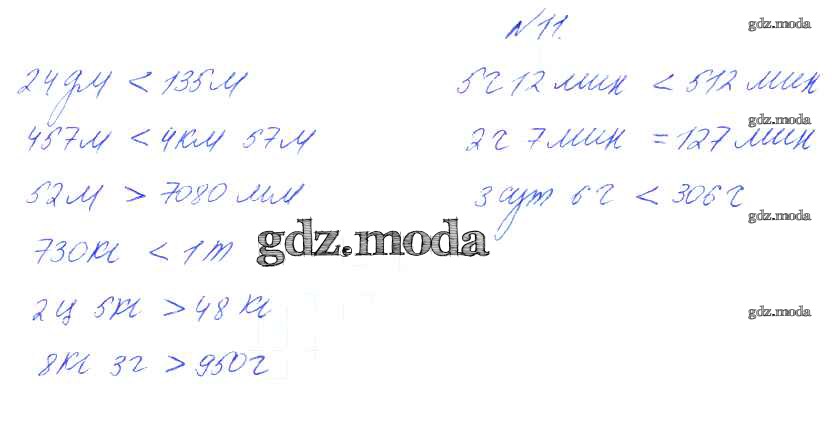 №11.
gdz.moda
24 дм < 135 м
5 ч 12 мин < 512 мин
gdz.moda
457 м < 4 км 57 м
2 ч 7 мин = 127 мин
52 м > 7080 мм
3 сут 6 ч < 306 ч
gdz.moda
730 кг < 1 т
gdz.moda
2 ц 5 кг > 48 кг
gdz.moda
8 кг 3 г > 950 г
gdz.moda